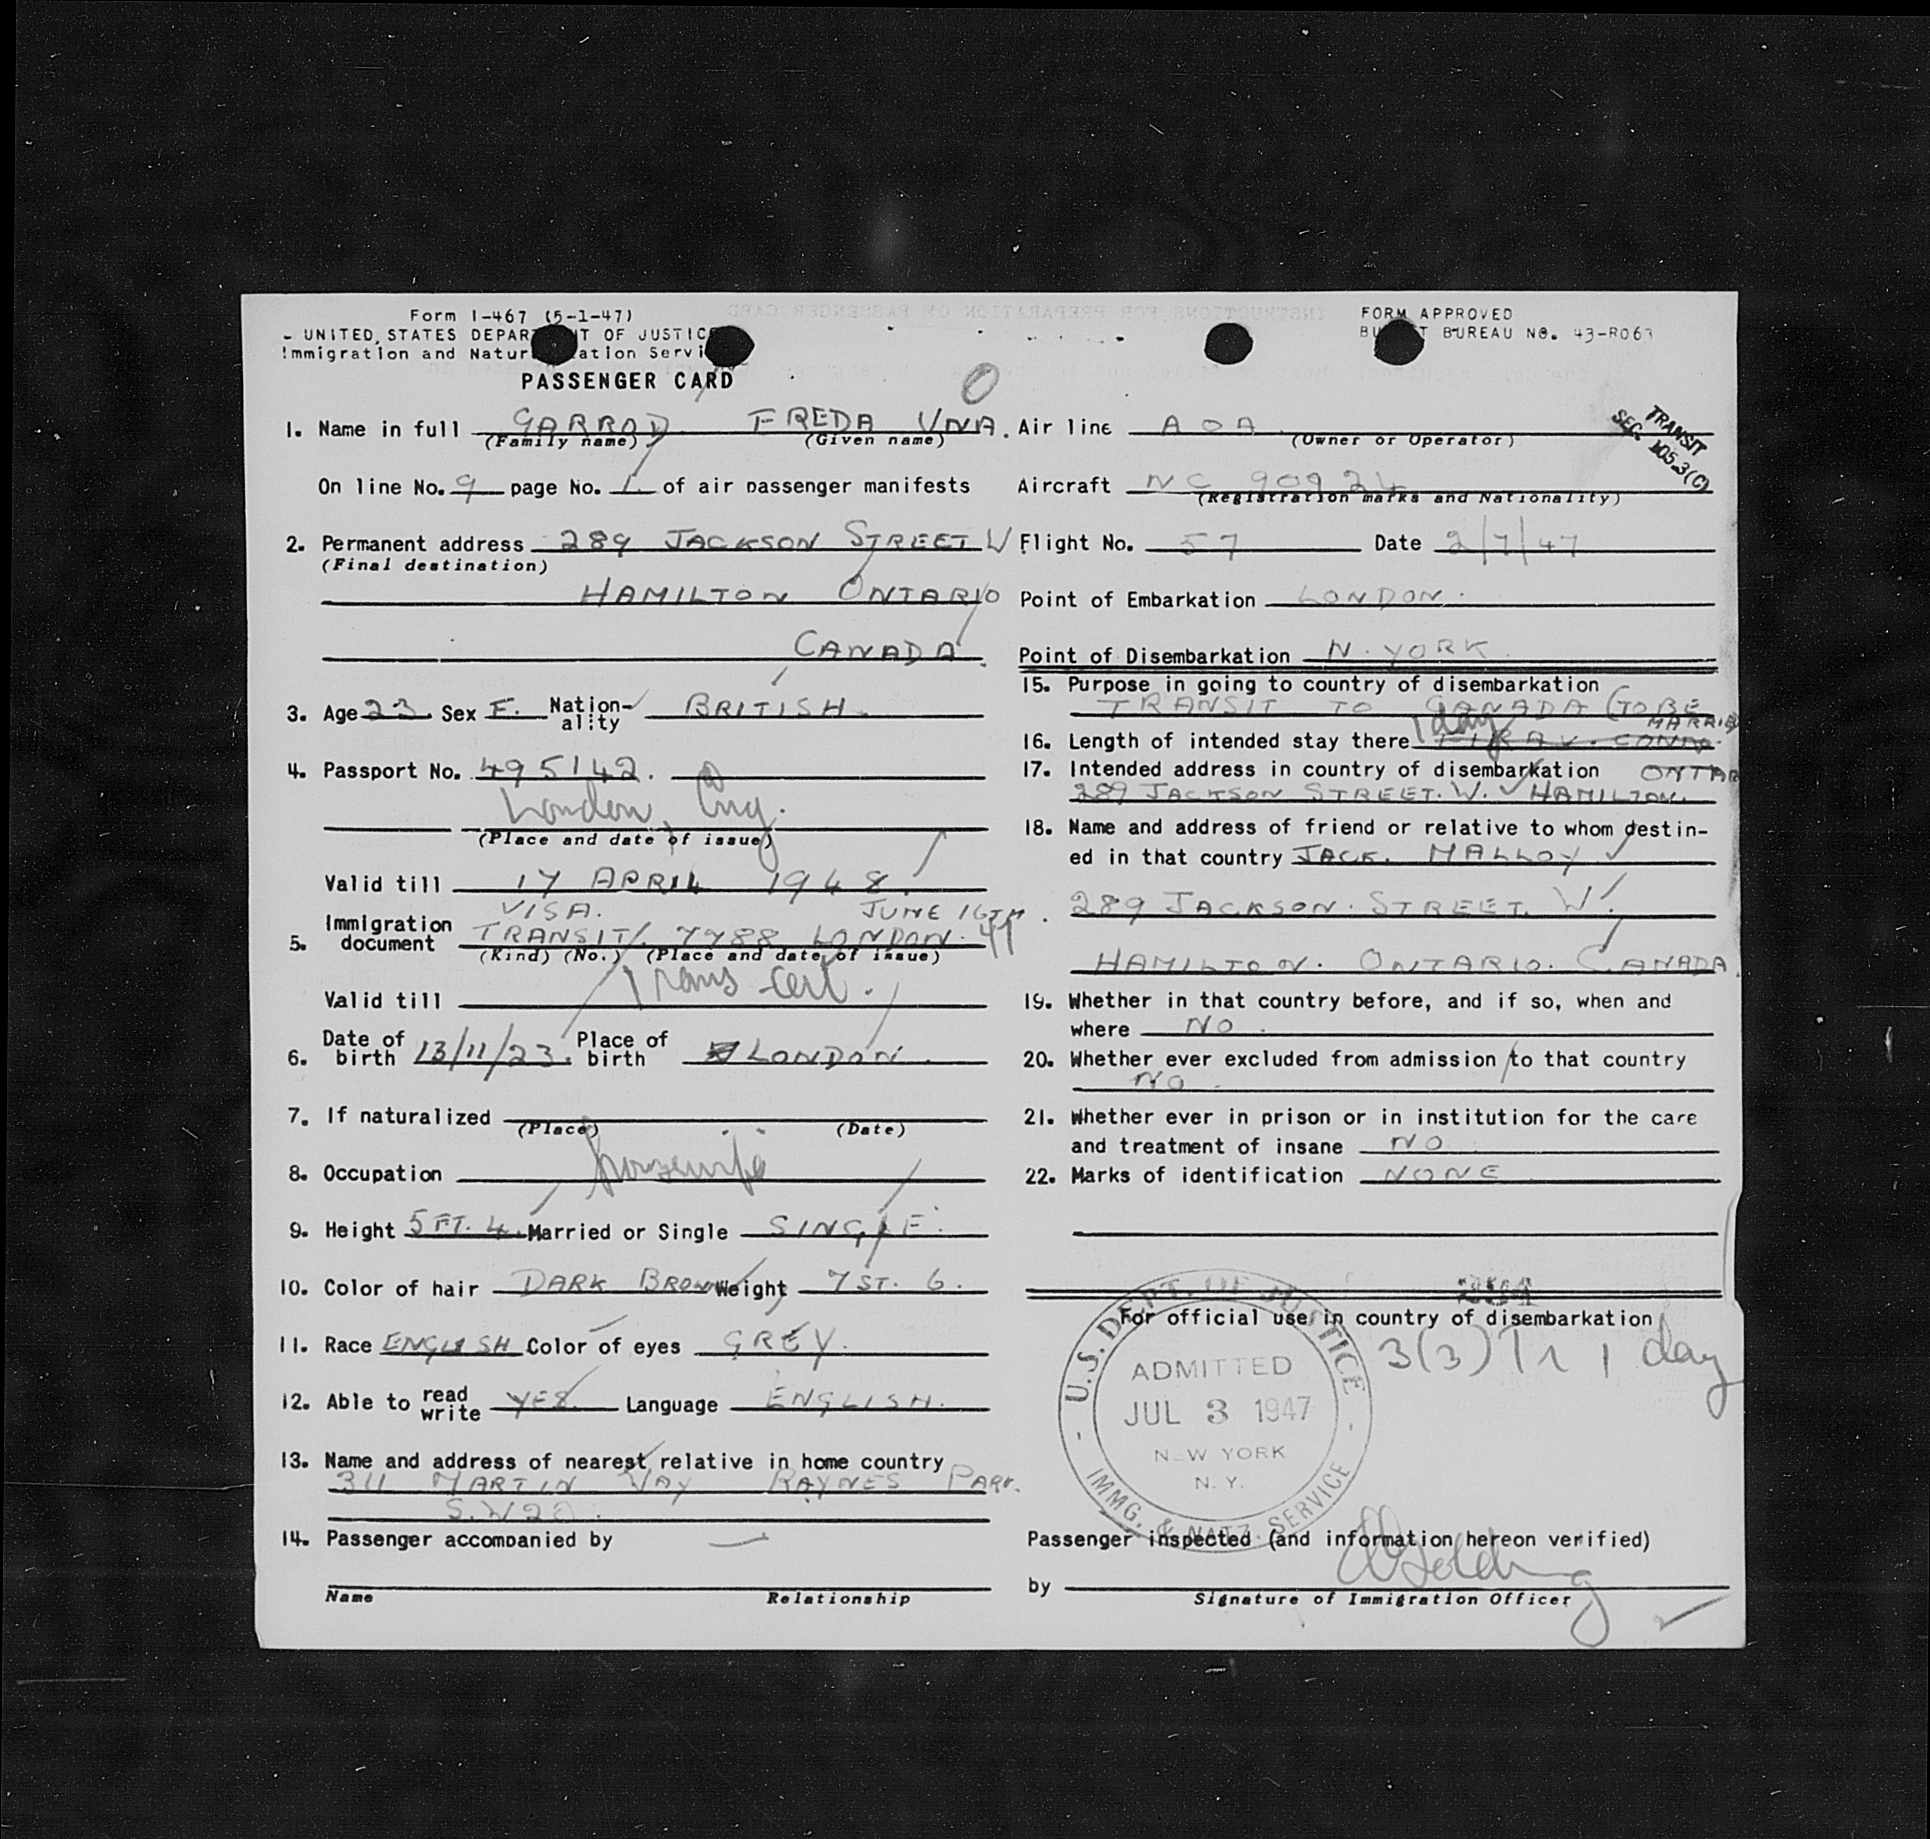 Form I-467 (5-1-47)
UNITED STATES DEPAR T OF JUSTIC
Immigration and Natur ation Servi
PASSENGER CARD
FORM APPROVED
BU T BUREAU NO. 43-R063
TRANSIT
SEC. 105.3(C)
1. Name in full GARROD FREDA UNA.
(Family name) (Given name)
On line No. 9 page No. 1. of air passenger manifests
2. Permanent address 289 JACKSON STREET W
(Final destination)
HAMILTON ONTARIO
CANADA.
3. Age 23. Sex F. Nation-ality BRITISH.
4. Passport No. 495142.
London, Eng.
(Place and date of issue)
Valid till 17 APRIL 1948.
5. Immigration document VISA. TRANSIT. 7788 LONDON. JUNE 16TH. 47
(Kind) (No.) (Place and date of issue)
Trans cert.
Valid till
6. Date of birth 13/11/23. Place of birth LONDON.
7. If naturalized
(Place) (Date)
8. Occupation housewife
9. Height 5 FT. 4. Married or Single SINGLE.
10. Color of hair DARK BROWN Weight 7 ST. 6.
11. Race ENGLISH Color of eyes GREY.
12. Able to read write YES. Language ENGLISH.
13. Name and address of nearest relative in home country
311 MARTIN WAY RAYNES PARK.
S.W 20.
14. Passenger accompanied by —
Name Relationship
Air line A O A.
(Owner or Operator)
Aircraft NC 90924
(Registration marks and Nationality)
Flight No. 57 Date 2/7/47
Point of Embarkation LONDON.
Point of Disembarkation N. YORK.
15. Purpose in going to country of disembarkation
TRANSIT TO CANADA (TO BE MARRIED
16. Length of intended stay there 1 day
17. Intended address in country of disembarkation ONTAR
289 JACKSON STREET. W. HAMILTON.
18. Name and address of friend or relative to whom destin-
ed in that country JACK. MALLOY
289 JACKSON. STREET. W.
HAMILTON. ONTARIO. CANADA.
19. Whether in that country before, and if so, when and
where NO.
20. Whether ever excluded from admission to that country
NO.
21. Whether ever in prison or in institution for the care
and treatment of insane NO
22. Marks of identification NONE
For official use in country of disembarkation
3(3) 1 day
U.S. DEPT. OF JUSTICE
ADMITTED
JUL 3 1947
N W YORK
N. Y.
IMMG. & NATZ. SERVICE
Passenger inspected (and information hereon verified)
by
Signature of Immigration Officer